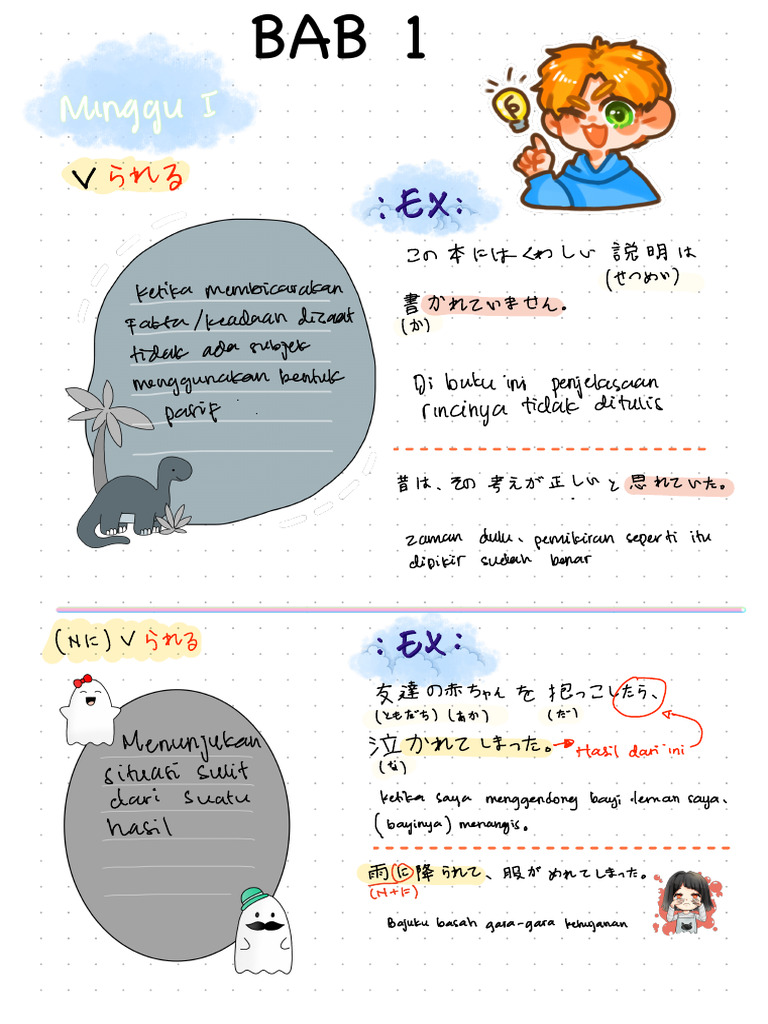 BAB 1
Minggu I
Vられる
ketika membicarakan
Fakta/keadaan dizaat
tidak ada subjek
menggunakan bentuk
pasif.
:EX:
この本にはくわしい説明は
(せつめい)
書かれていません。
(か)
Di buku ini penjelasaan
rincinya tidak ditulis
昔は、その考えが正しいと思れていた。
zaman dulu、pemikiran seperti itu
dipikir sudah benar
(Nに)Vられる
Menunjukan
situasi sulit
dari suatu
hasil
:EX:
友達の赤ちゃんを抱っこしたら、
(ともだち)(あか)(だ)
泣かれてしまった。→Hasil dari ini
(な)
ketika saya menggendong bayi teman saya、
(bayinya) menangis。
雨に降られて、服がめれてしまった。
(N+に)
Bajuku basah gara-gara kehuganan